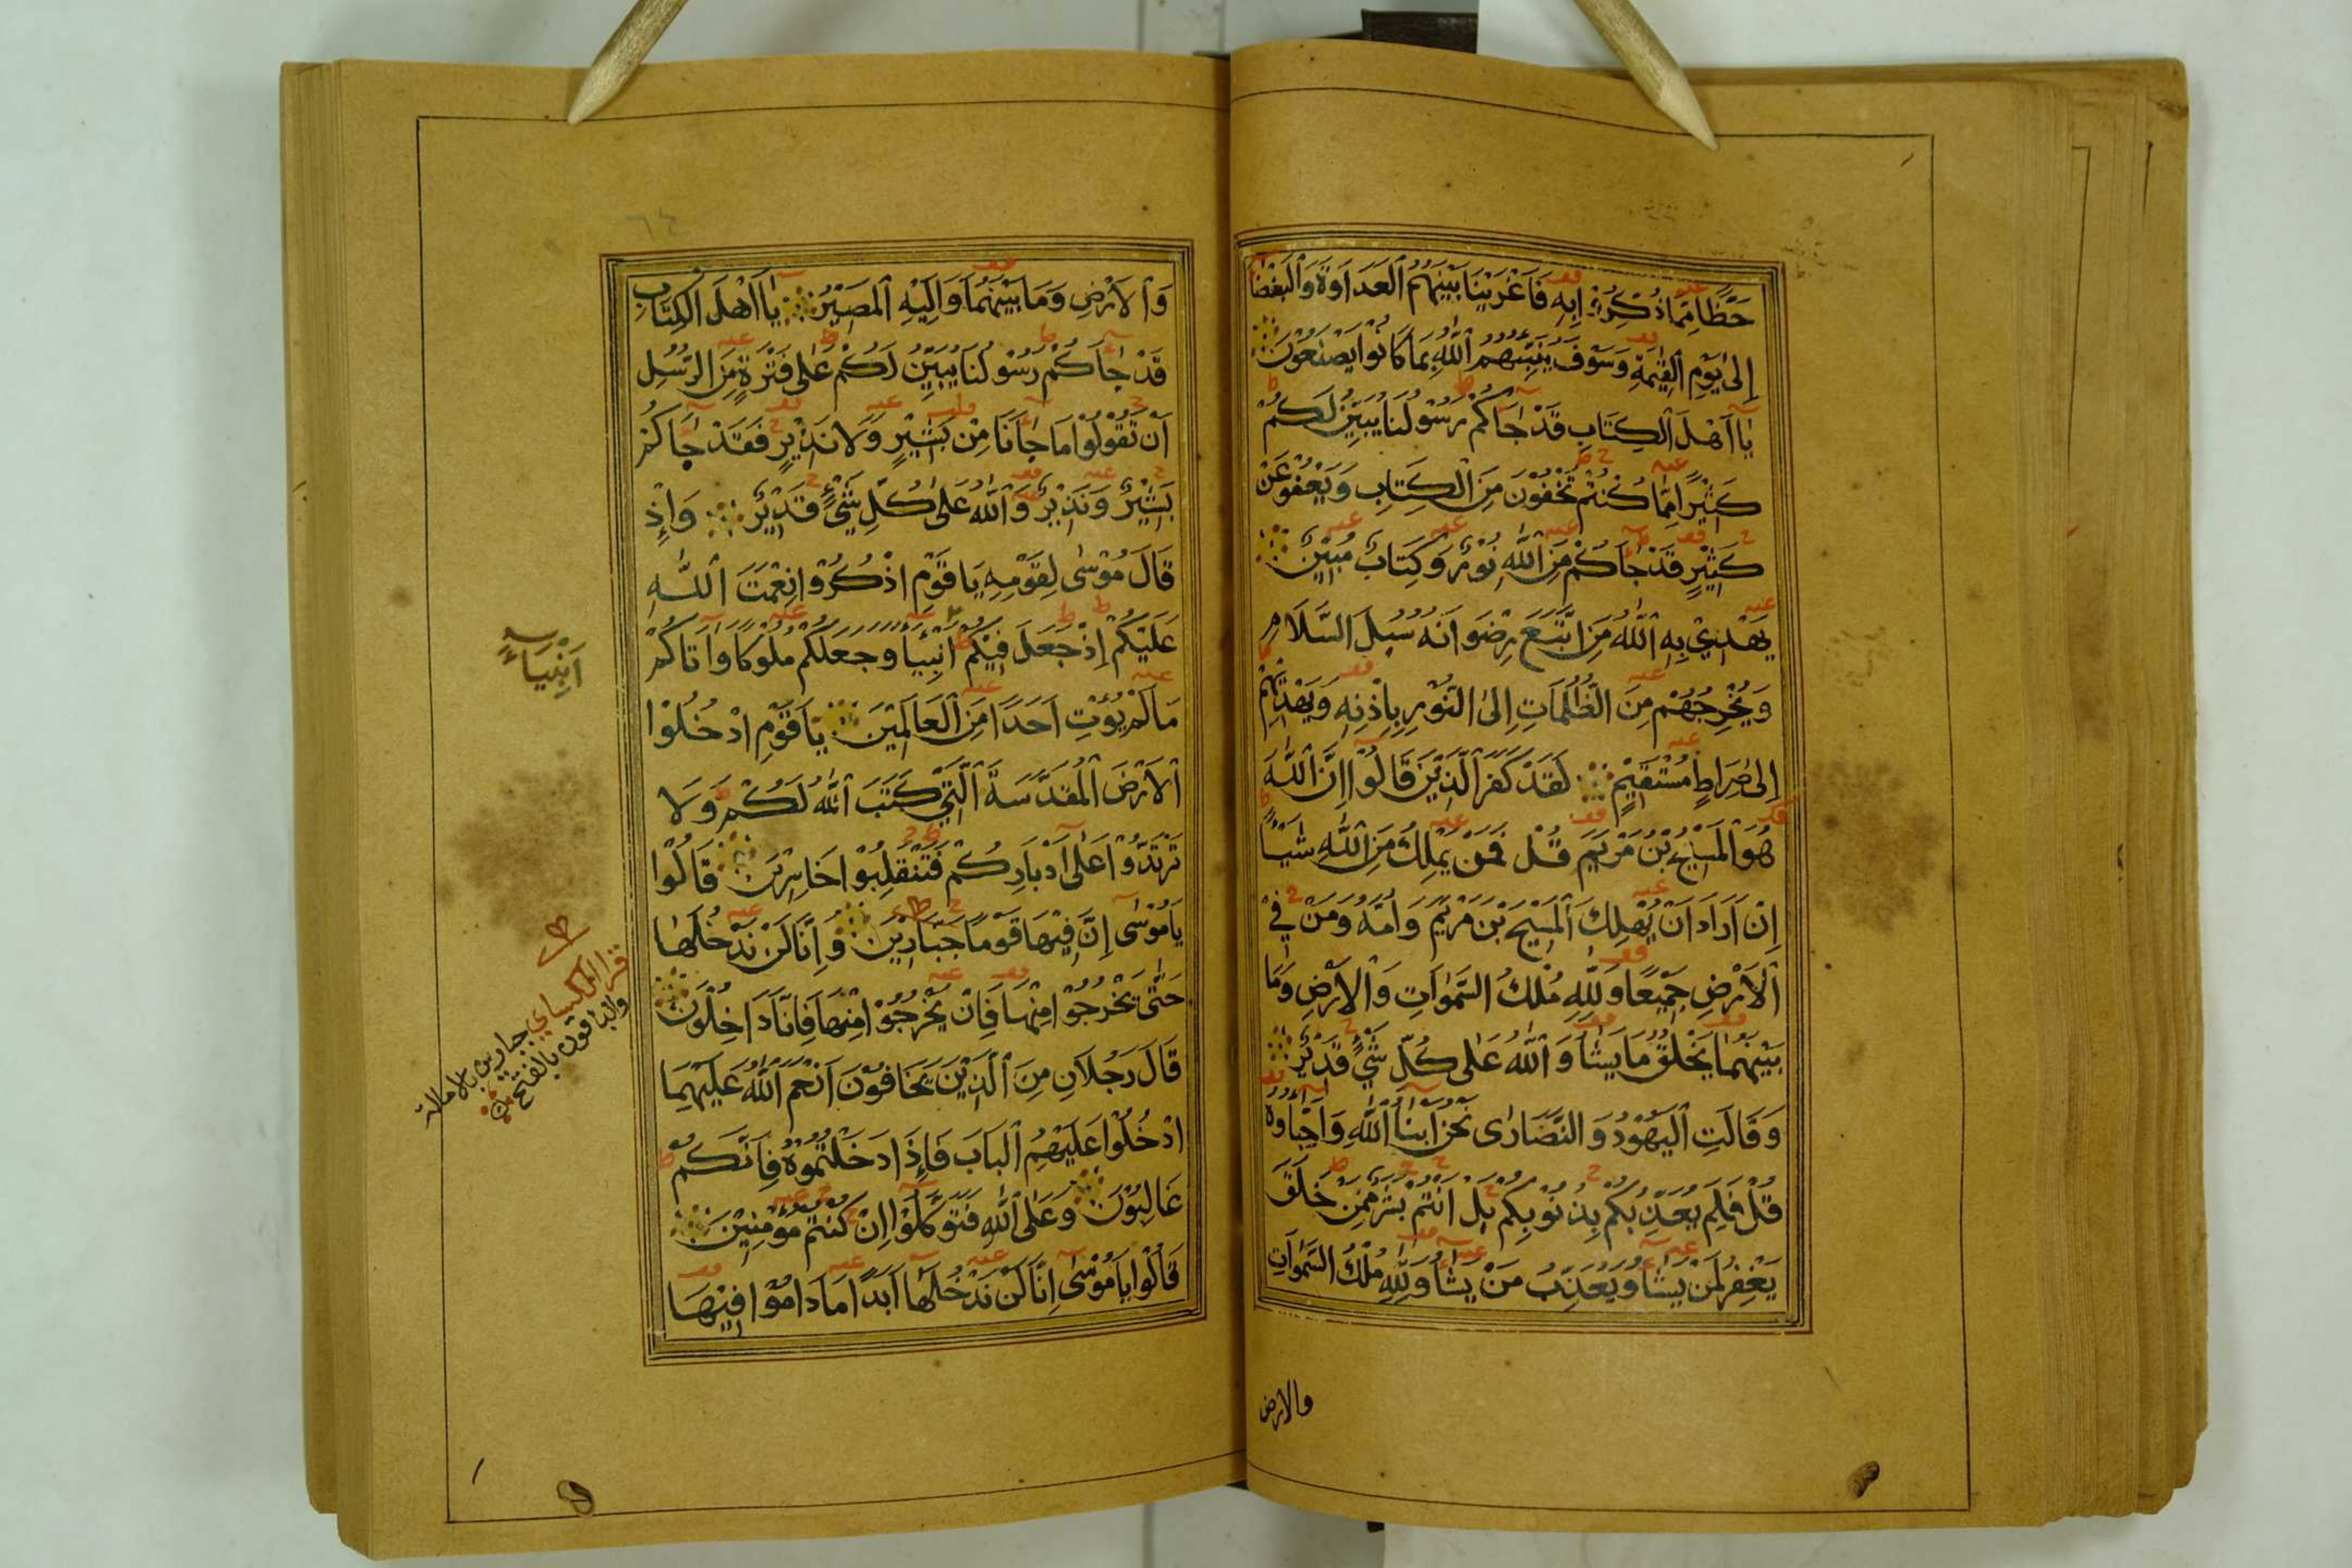 حَظًّا مِمَّا ذُكِّرُوْا بِهِ فَاَغْرَيْنَا بَيْنَهُمُ الْعَدَاوَةَ وَالْبَغْضَا
اِلٰى يَوْمِ الْقِيٰمَةِ وَسَوْفَ يُنَبِّئُهُمُ اللّٰهُ بِمَا كَانُوْا يَصْنَعُوْنَ
يَا اَهْلَ الْكِتَابِ قَدْ جَاَكُمْ رَسُوْلُنَا يُبَيِّنُ لَكُمْ
كَثِيْرًا مِمَّا كُنْتُمْ تُخْفُوْنَ مِنَ الْكِتَابِ وَيَعْفُوْ عَنْ
كَثِيْرٍ قَدْ جَاَكُمْ مِنَ اللّٰهِ نُوْرٌ وَكِتَابٌ مُبِيْنٌ
يَهْدِيْ بِهِ اللّٰهُ مَنِ اتَّبَعَ رِضْوَانَهُ سُبُلَ السَّلَامِ
وَيُخْرِجُهُمْ مِنَ الظُّلُمَاتِ اِلَى النُّوْرِ بِاِذْنِهِ وَيَهْدِيْهِمْ
اِلٰى صِرَاطٍ مُسْتَقِيْمٍ لَقَدْ كَفَرَ الَّذِيْنَ قَالُوْا اِنَّ اللّٰهَ
هُوَ الْمَسِيْحُ بْنُ مَرْيَمَ قُلْ فَمَنْ يَمْلِكُ مِنَ اللّٰهِ شَيْـًٔا
اِنْ اَرَادَ اَنْ يُهْلِكَ الْمَسِيْحَ بْنَ مَرْيَمَ وَاُمَّهُ وَمَنْ فِيْ
الْاَرْضِ جَمِيْعًا وَلِلّٰهِ مُلْكُ السَّمٰوَاتِ وَالْاَرْضِ وَمَا
بَيْنَهُمَا يَخْلُقُ مَا يَشَاُ وَاللّٰهُ عَلٰى كُلِّ شَيْءٍ قَدِيْرٌ
وَقَالَتِ الْيَهُوْدُ وَالنَّصَارٰى نَحْنُ اَبْنَاُ اللّٰهِ وَاَحِبَّاؤُهُ
قُلْ فَلِمَ يُعَذِّبُكُمْ بِذُنُوْبِكُمْ بَلْ اَنْتُمْ بَشَرٌ مِمَّنْ خَلَقَ
يَغْفِرُ لِمَنْ يَشَاُ وَيُعَذِّبُ مَنْ يَشَاُ وَلِلّٰهِ مُلْكُ السَّمٰوَاتِ
والارض
٦٤
وَالْاَرْضِ وَمَا بَيْنَهُمَا وَاِلَيْهِ الْمَصِيْرُ يَا اَهْلَ الْكِتَابِ
قَدْ جَاَكُمْ رَسُوْلُنَا يُبَيِّنُ لَكُمْ عَلٰى فَتْرَةٍ مِنَ الرُّسُلِ
اَنْ تَقُوْلُوْا مَا جَاَنَا مِنْ بَشِيْرٍ وَلَا نَذِيْرٍ فَقَدْ جَاَكُمْ
بَشِيْرٌ وَنَذِيْرٌ وَاللّٰهُ عَلٰى كُلِّ شَيْءٍ قَدِيْرٌ وَاِذْ
قَالَ مُوْسٰى لِقَوْمِهِ يَا قَوْمِ اذْكُرُوْا نِعْمَتَ اللّٰهِ
عَلَيْكُمْ اِذْ جَعَلَ فِيْكُمْ اَنْبِيَاَ وَجَعَلَكُمْ مُلُوْكًا وَاٰتَاكُمْ
مَا لَمْ يُؤْتِ اَحَدًا مِنَ الْعَالَمِيْنَ يَا قَوْمِ ادْخُلُوْا
الْاَرْضَ الْمُقَدَّسَةَ الَّتِيْ كَتَبَ اللّٰهُ لَكُمْ وَلَا
تَرْتَدُّوْا عَلٰى اَدْبَارِكُمْ فَتَنْقَلِبُوْا خَاسِرِيْنَ قَالُوْا
يَا مُوْسٰى اِنَّ فِيْهَا قَوْمًا جَبَّارِيْنَ وَاِنَّا لَنْ نَدْخُلَهَا
حَتّٰى يَخْرُجُوْا مِنْهَا فَاِنْ يَخْرُجُوْا مِنْهَا فَاِنَّا دَاخِلُوْنَ
قَالَ رَجُلَانِ مِنَ الَّذِيْنَ يَخَافُوْنَ اَنْعَمَ اللّٰهُ عَلَيْهِمَا
ادْخُلُوْا عَلَيْهِمُ الْبَابَ فَاِذَا دَخَلْتُمُوْهُ فَاِنَّكُمْ
غَالِبُوْنَ وَعَلَى اللّٰهِ فَتَوَكَّلُوْا اِنْ كُنْتُمْ مُؤْمِنِيْنَ
قَالُوْا يَا مُوْسٰى اِنَّا لَنْ نَدْخُلَهَا اَبَدًا مَا دَامُوْا فِيْهَا
اَنْبِيَاءَ
قرا الكسايي جبارين بالامالة
والباقون بالفتح